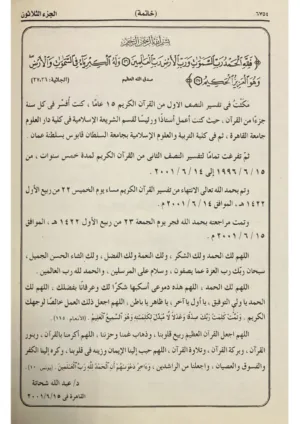 ٦٧٥٤
(خاتمة)
الجزء الثلاثون
بسم الله الرحمن الرحيم
﴿ فَلِلَّهِ الْحَمْدُ رَبِّ السَّمَوَاتِ وَرَبِّ الْأَرْضِ رَبِّ الْعَالَمِينَ وَلَهُ الْكِبْرِيَاءُ فِي السَّمَوَاتِ وَالْأَرْضِ
وَهُوَ الْعَزِيزُ الْحَكِيمُ ﴾ صدق الله العظيم (الجاثية: ٣٧،٣٦)
مكثت في تفسير النصف الأول من القرآن الكريم ١٥ عامًا ، كنت أفسر في كل سنة
جزءًا من القرآن ، حيث كنت أعمل أستاذًا ورئيسًا لقسم الشريعة الإسلامية في كلية دار العلوم
جامعة القاهرة ، ثم في كلية التربية والعلوم الإسلامية بجامعة السلطان قابوس بسلطنة عمان
ثم تفرغت تمامًا لتفسير النصف الثاني من القرآن الكريم لمدة خمس سنوات ، من
١٥ / ٦ / ١٩٩٦ إلى ١٤ / ٦ / ٢٠٠١ .
وتم بحمد الله تعالى الانتهاء من تفسير القرآن الكريم مساء يوم الخميس ٢٢ من ربيع الأول
١٤٢٢ هـ ، الموافق ١٤ / ٦ / ٢٠٠١ م .
وتمت مراجعته بحمد الله فجر يوم الجمعة ٢٣ من ربيع الأول ١٤٢٢ هـ ، الموافق
١٥ / ٦ / ٢٠٠١ م .
اللهم لك الحمد ، ولك الشكر ، ولك النعمة ولك الفضل ، ولك الثناء الحسن الجميل ،
سبحان ربك رب العزة عما يصفون ، وسلام على المرسلين ، والحمد لله رب العالمين .
اللهم لك الحمد ، اللهم هذه دموعي أسكبها شكرًا لك وعرفانًا بفضلك ، اللهم لك
الحمد يا ولي التوفيق ، يا أول يا آخر ، يا ظاهر يا باطن ، اللهم اجعل ذلك العمل خالصًا لوجهك
الكريم . وَتَمَّتْ كَلِمَتُ رَبِّكَ صِدْقًا وَعَدْلًا لَّا مُبَدِّلَ لِكَلِمَاتِهِ وَهُوَ السَّمِيعُ الْعَلِيمُ . (الأنعام: ١١٥) .
اللهم اجعل القرآن العظيم ربيع قلوبنا ، وذهاب غمنا وحزننا ، اللهم أكرمنا بالقرآن ، وبنور
القرآن ، وبركة القرآن ، وتلاوة القرآن ، اللهم حبب إلينا الإيمان وزينه في قلوبنا ، وكره إلينا الكفر
والفسوق والعصيان ، واجعلنا من الراشدين ، وَءَاخِرُ دَعْوَاهُمْ أَنِ الْحَمْدُ لِلَّهِ رَبِّ الْعَالَمِينَ . (يونس: ١٠) .
د/ عبد الله شحاتة
القاهرة في ٢٠٠١/٦/١٥